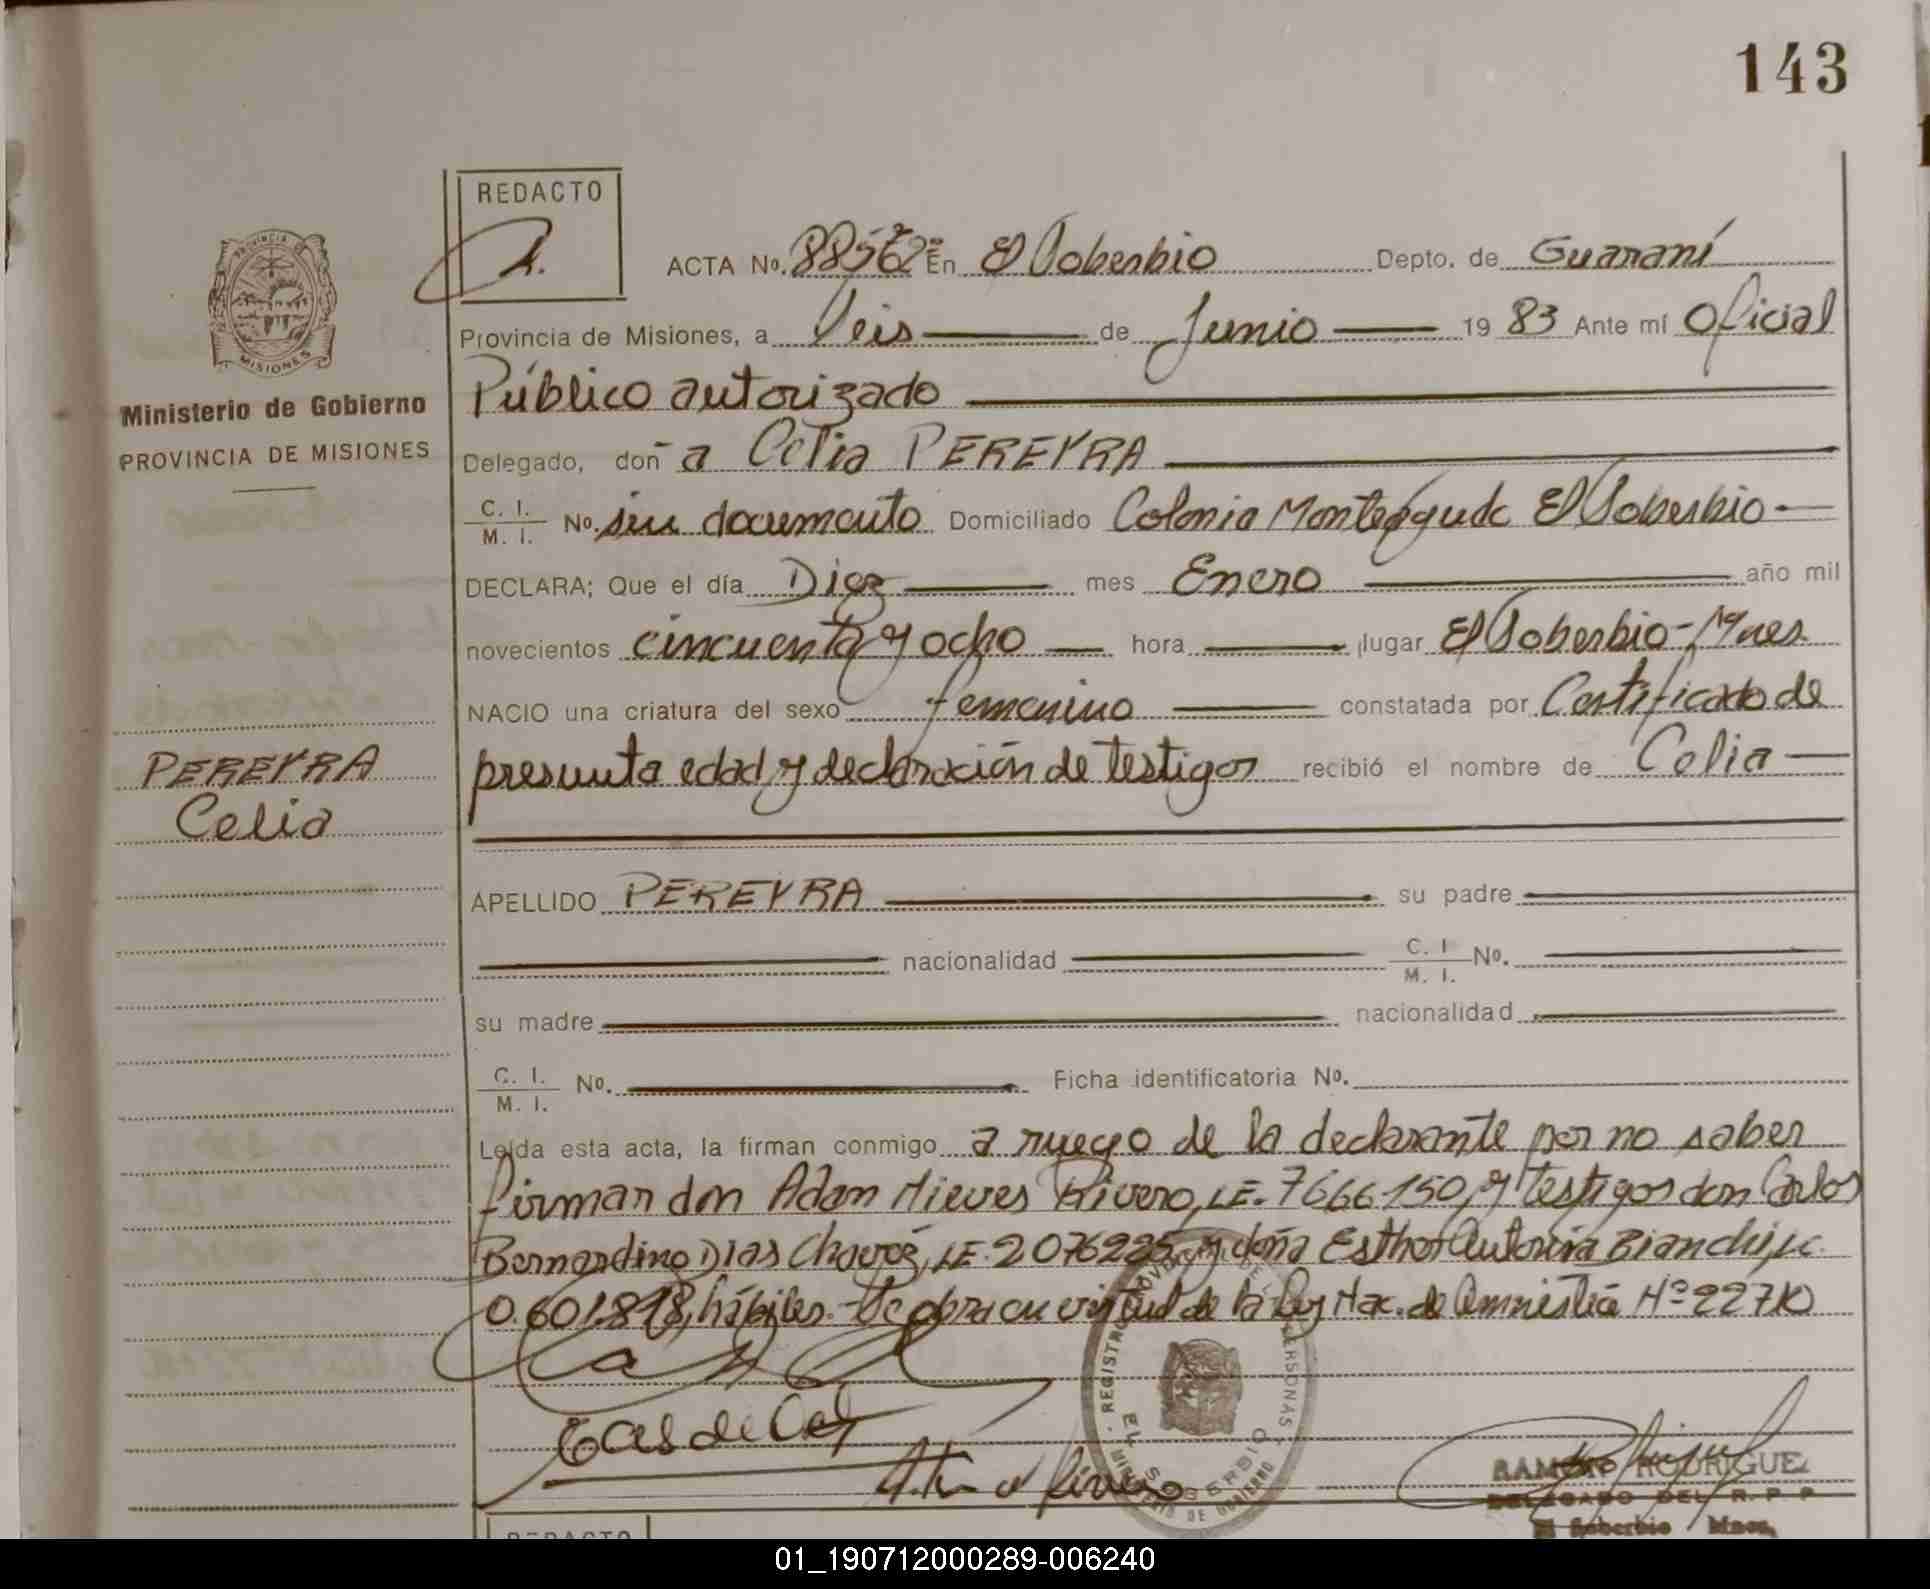 143
REDACTO
ACTA No. 88562 En El Soberbio Depto. de Guaraní
Provincia de Misiones, a Seis de Junio 19 83 Ante mí Oficial
Público autorizado
Delegado, doña Celia PEREYRA
C. I. M. I. No. sin documento Domiciliado Colonia Monteagudo El Soberbio
DECLARA; Que el día Diez mes Enero año mil
novecientos cincuenta y ocho hora lugar El Soberbio - Mnes.
NACIO una criatura del sexo femenino constatada por Certificado de
presunta edad y declaración de testigos recibió el nombre de Celia
APELLIDO PEREYRA su padre
nacionalidad C. I. M. I. No.
su madre nacionalidad
C. I. M. I. No. Ficha identificatoria No.
Leída esta acta, la firman conmigo a ruego de la declarante por no saber
firmar don Adan Nieves Rivero, LE. 7666150, y testigos don Carlos
Bernardino Dias Chavez, LE. 2076225 y doña Esther Antonia Bianchi, LC.
0.601.898, hábiles. - Se obra en virtud de la Ley Nac. de Amnistia Nº 22710
PROVINCIA DE
MISIONES
Ministerio de Gobierno
PROVINCIA DE MISIONES
PEREYRA
Celia
EL SOBERBIO
RAMON RODRIGUEZ
DELEGADO DEL R. P. P.
El Soberbio Mnes.
REDACTO
01_190712000289-006240